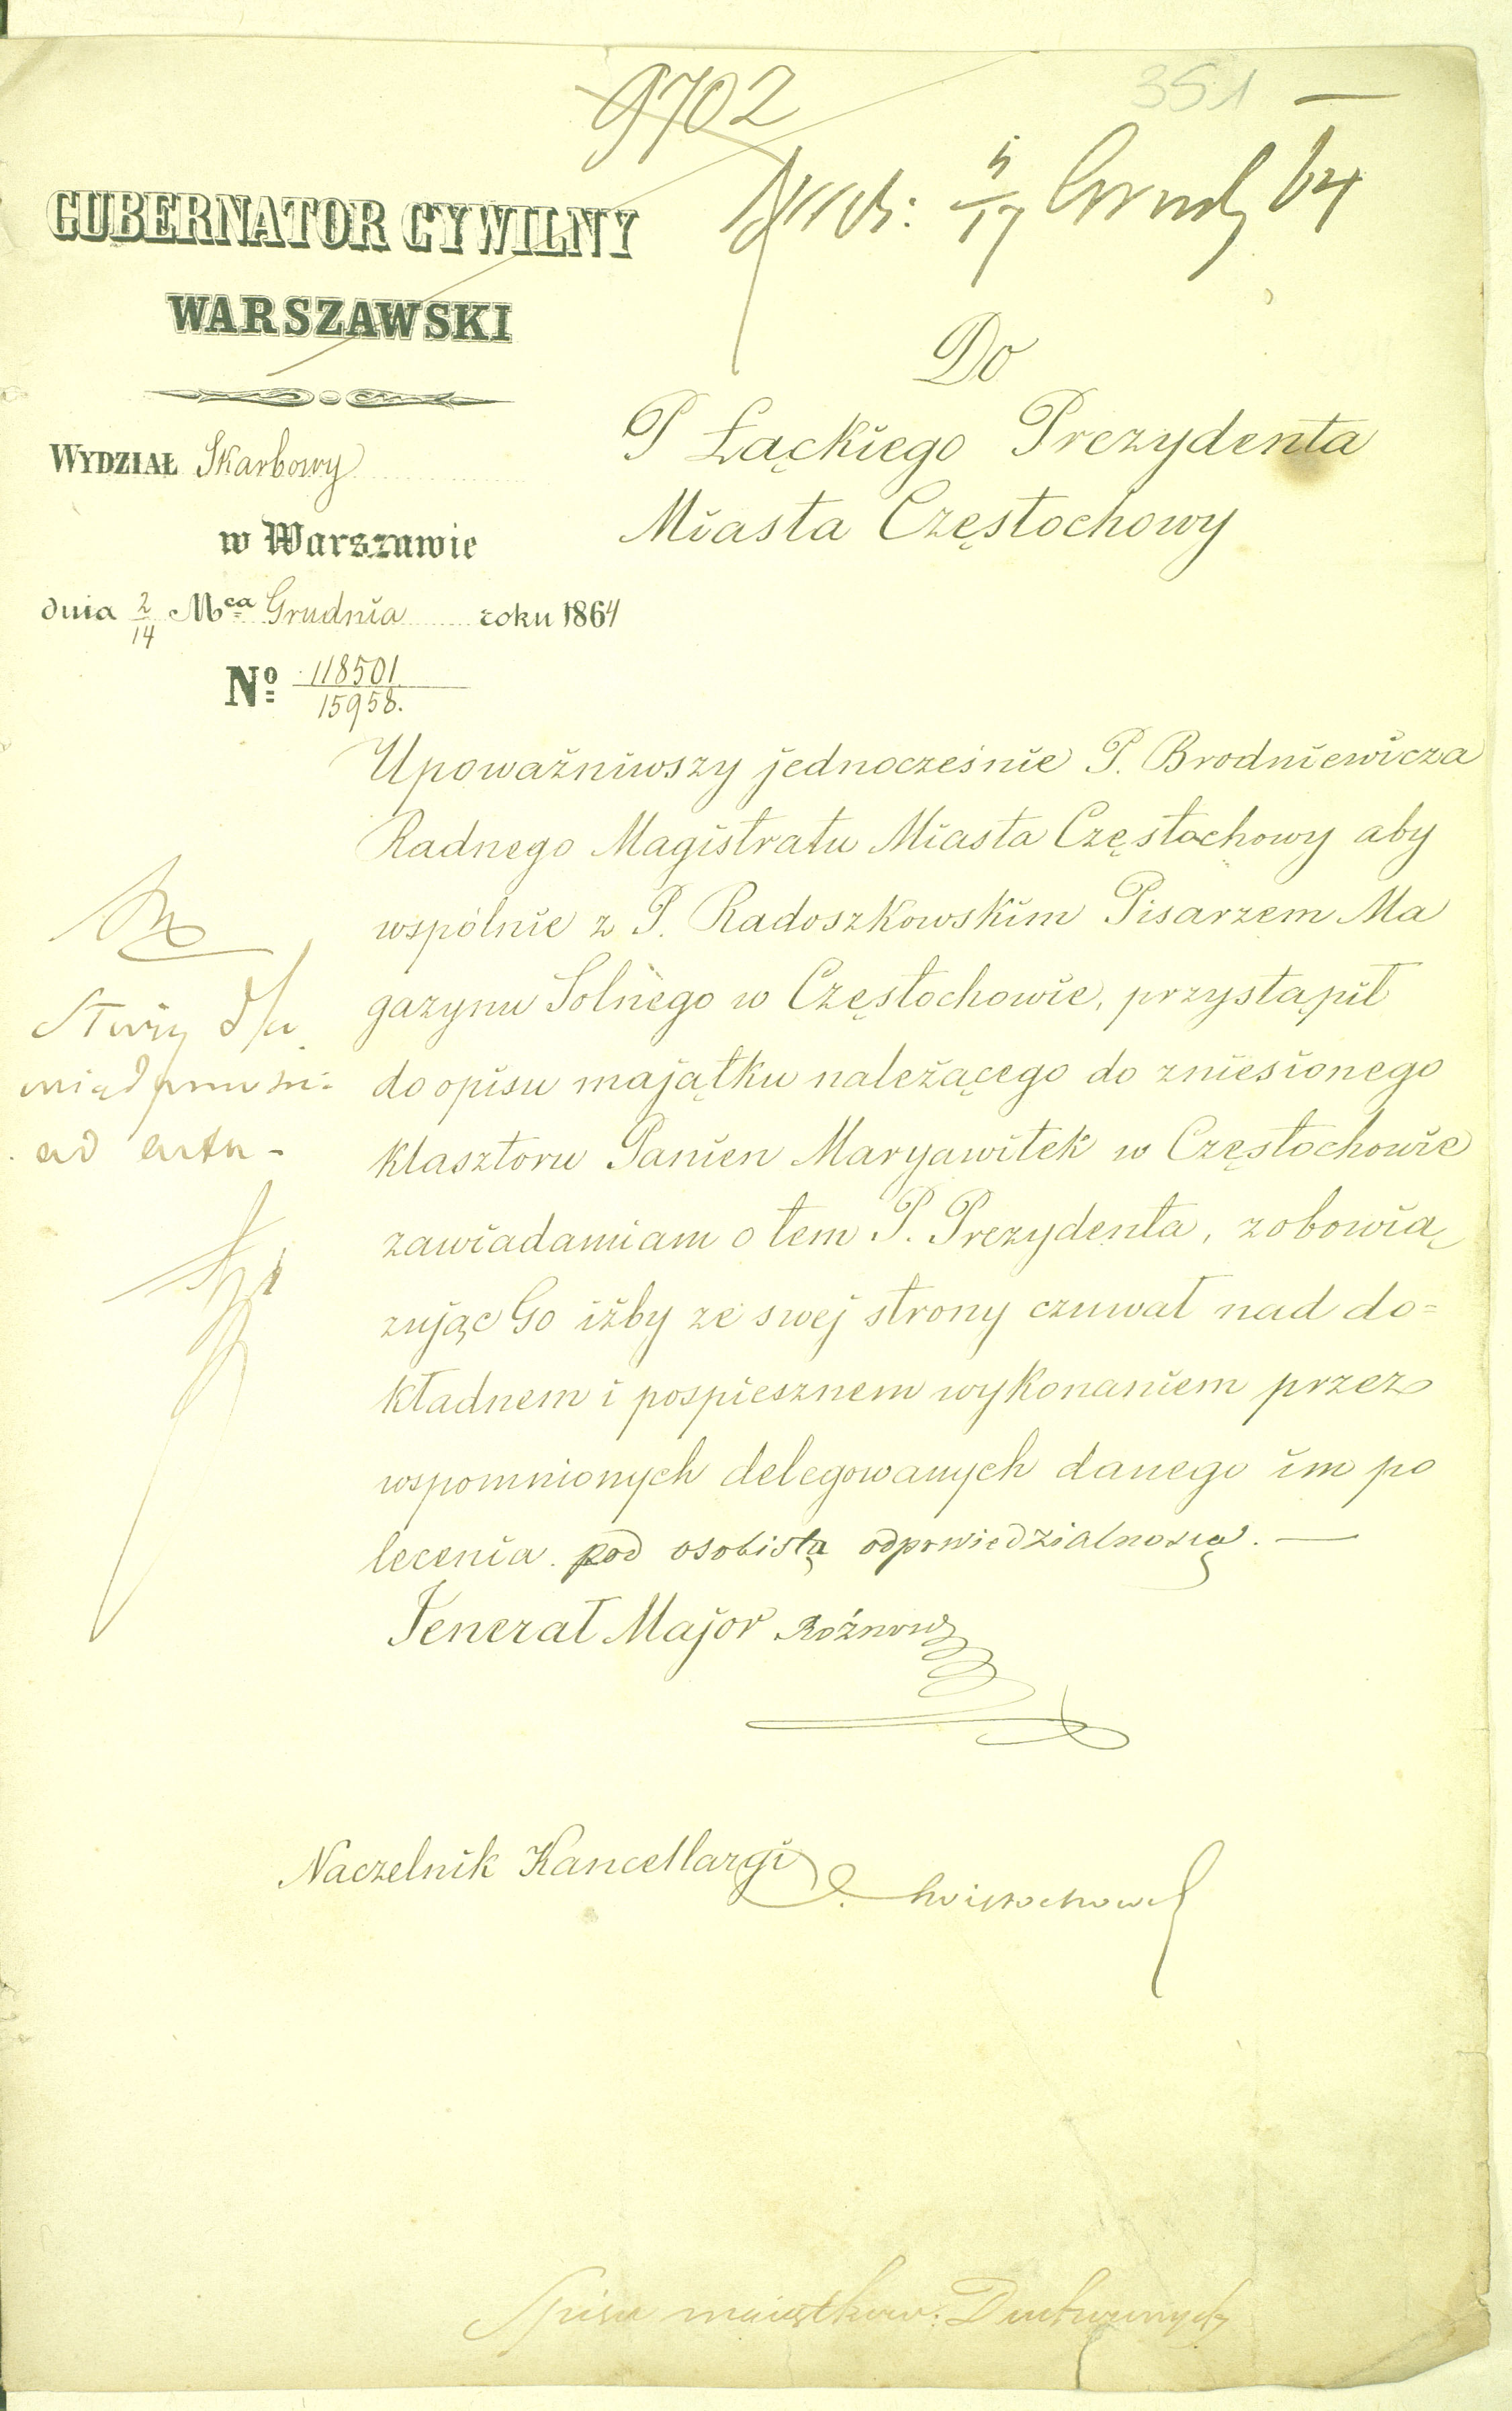 9702
351
5/17 Grud 64
GUBERNATOR CYWILNY
WARSZAWSKI
WYDZIAŁ Skarbowy
w Warszawie
dnia 2/14 Mca Grudnia roku 1864
No 118501/15958.
Do
P Łąckiego Prezydenta
Miasta Częstochowy
Upoważniwszy jednocześnie P. Brodniewicza
Radnego Magistratu Miasta Częstochowy aby
wspólnie z P. Radoszkowskim Pisarzem Ma
gazynu Solnego w Częstochowie, przystąpił
do opisu majątku należącego do zniesionego
klasztoru Panien Maryawitek w Częstochowie
zawiadamiam o tem P. Prezydenta, zobowią
zując Go iżby ze swej strony czuwał nad do=
kładnem i pospiesznem wykonaniem przez
wspomnionych delegowanych danego im po
lecenia. pod osobistą odpowiedzialnością. —
Jenerał Major Rożnow
Służy dla
ad acta -
Naczelnik Kancellaryi
Spisu majątków: Duchownych